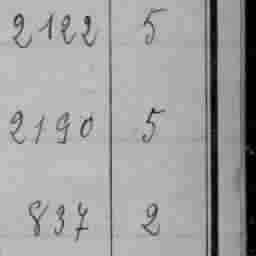 2122 5
2190 5
837 2